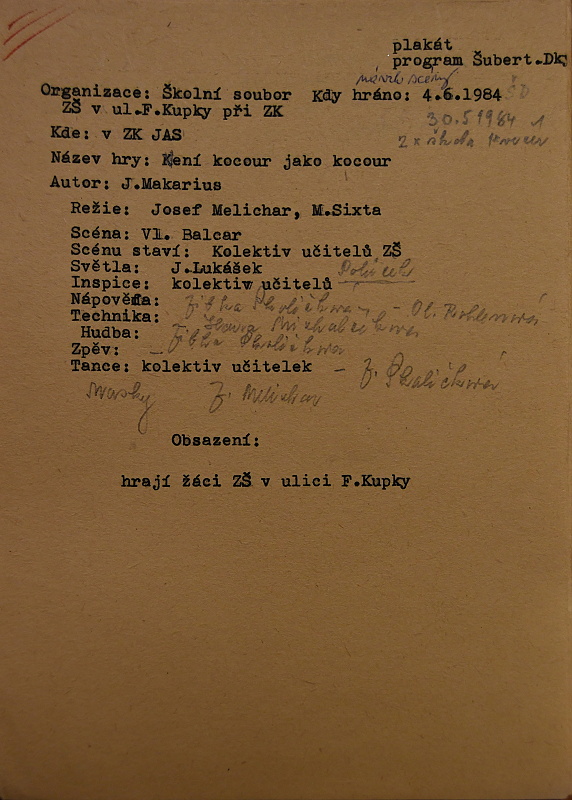 plakát
program Šubert.Dk
návrh scény
Organizace: Školní soubor Kdy hráno: 4.6.1984 ŠD
ZŠ v ul.F.Kupky při ZK
30.5 1984
Kde: v ZK JAS
2 x
Název hry: Není kocour jako kocour
Autor: J.Makarius
Režie: Josef Melichar, M.Sixta
Scéna: Vl. Balcar
Scénu staví: Kolektiv učitelů ZŠ
Světla: J.Lukášek
Inspice: kolektiv učitelů
Nápověda:
Technika:
Hudba:
Zpěv:
Tance: kolektiv učitelek -
masky J. Melichar
Obsazení:
hrají žáci ZŠ v ulici F.Kupky